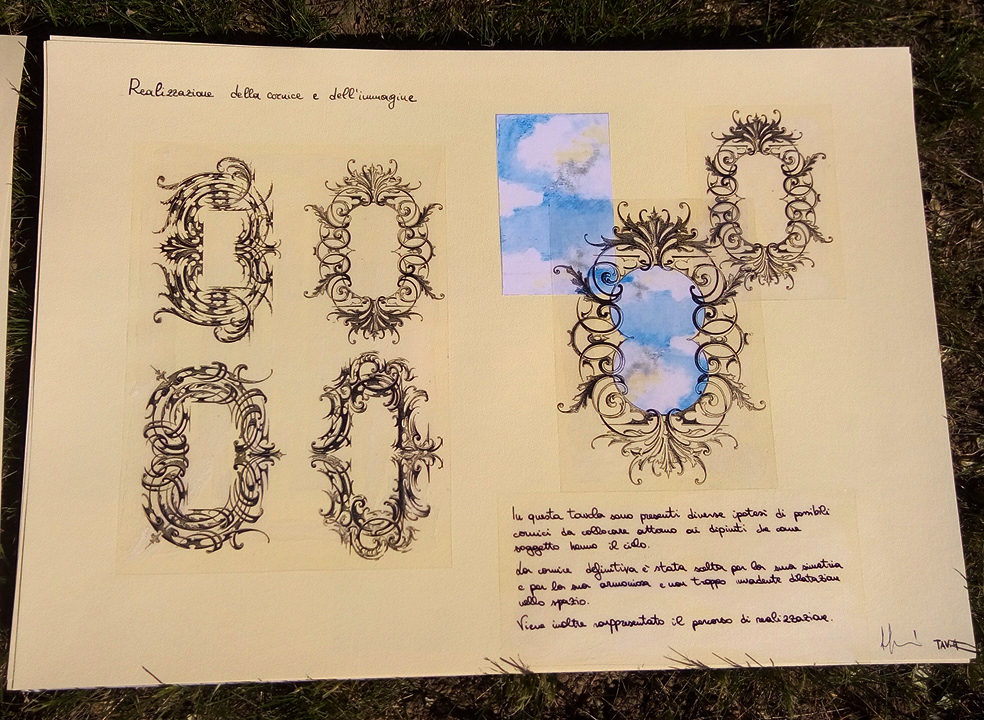 Realizzazione della cornice e dell'immagine
In questa tavola sono presenti diverse ipotesi di possibili
cornici da collocare attorno ai dipinti che come
soggetto hanno il cielo.
La cornice definitiva è stata scelta per la sua simmetria
e per la sua armoniosa e non troppo invadente dilatazione
nello spazio.
Viene inoltre rappresentato il percorso di realizzazione.